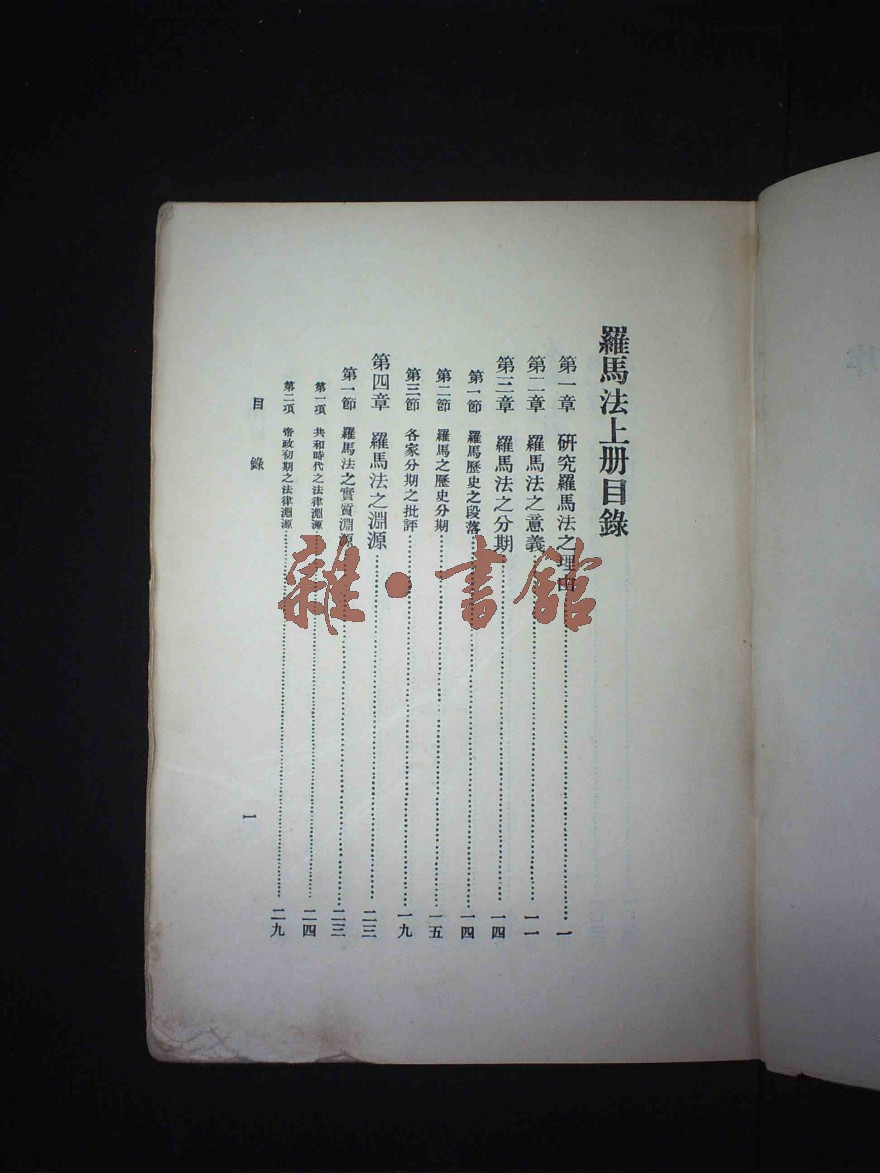 序
羅馬法上册目錄
第一章 研究羅馬法之理由……一
第二章 羅馬法之意義……一一
第三章 羅馬法之分期……一四
第一節 羅馬歷史之段落……一四
第二節 羅馬之歷史分期……一五
第三節 各家分期之批評……一九
第四章 羅馬法之淵源……二三
第一節 羅馬法之實質淵源……二三
第一項 共和時代之法律淵源……二四
第二項 帝政初期之法律淵源……二九
目錄
一
雜·書館